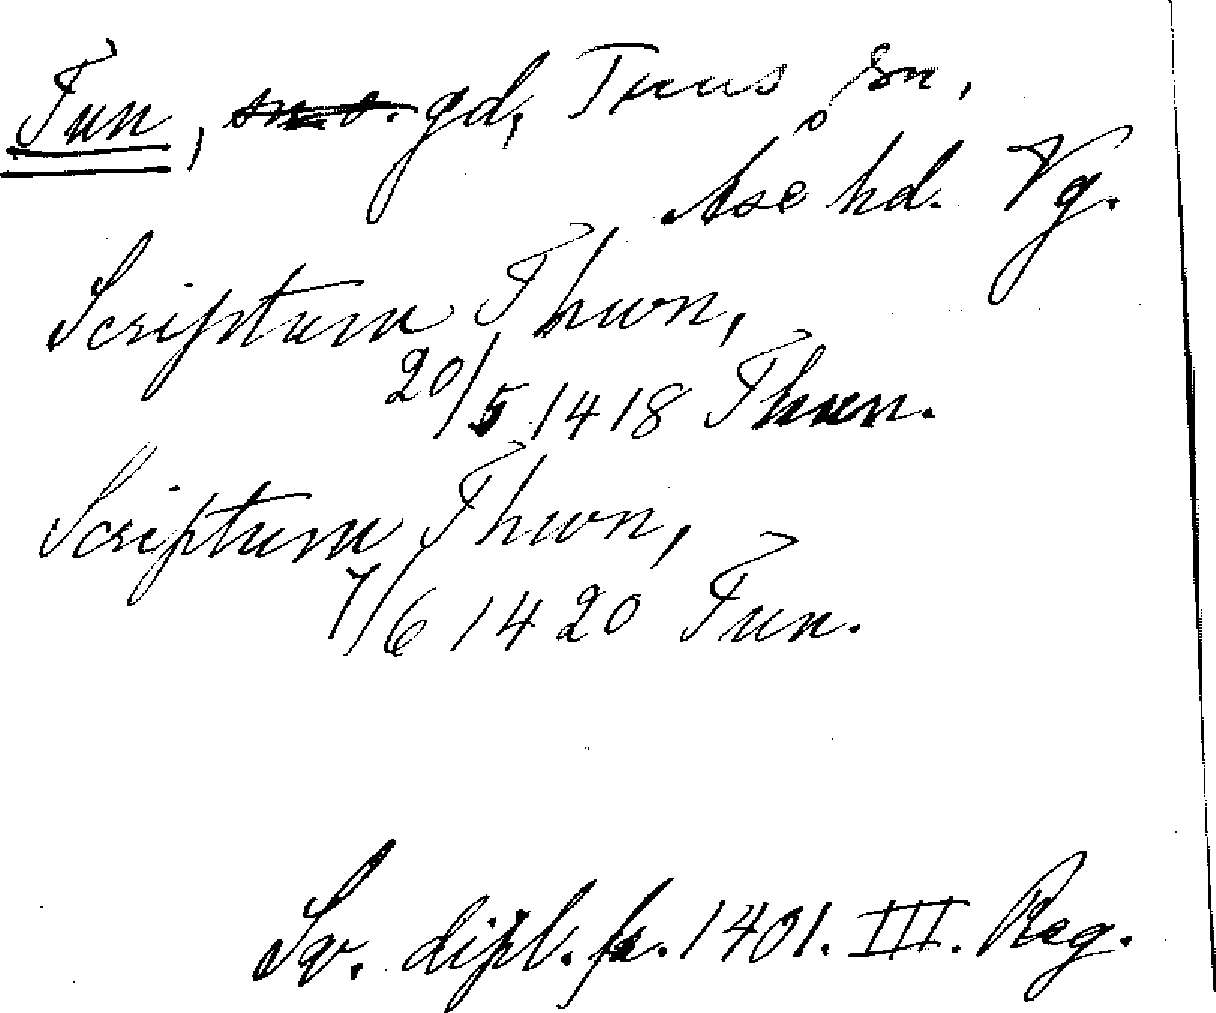 Tun, sn o. gd, Tuns sn,
Åse hd. Vg.
Scriptum Thwn,
20/5 1418 Thun.
Scriptum Thwn,
7/6 1420 Tun.
Sv. dipl. fr. 1401. III. Reg.